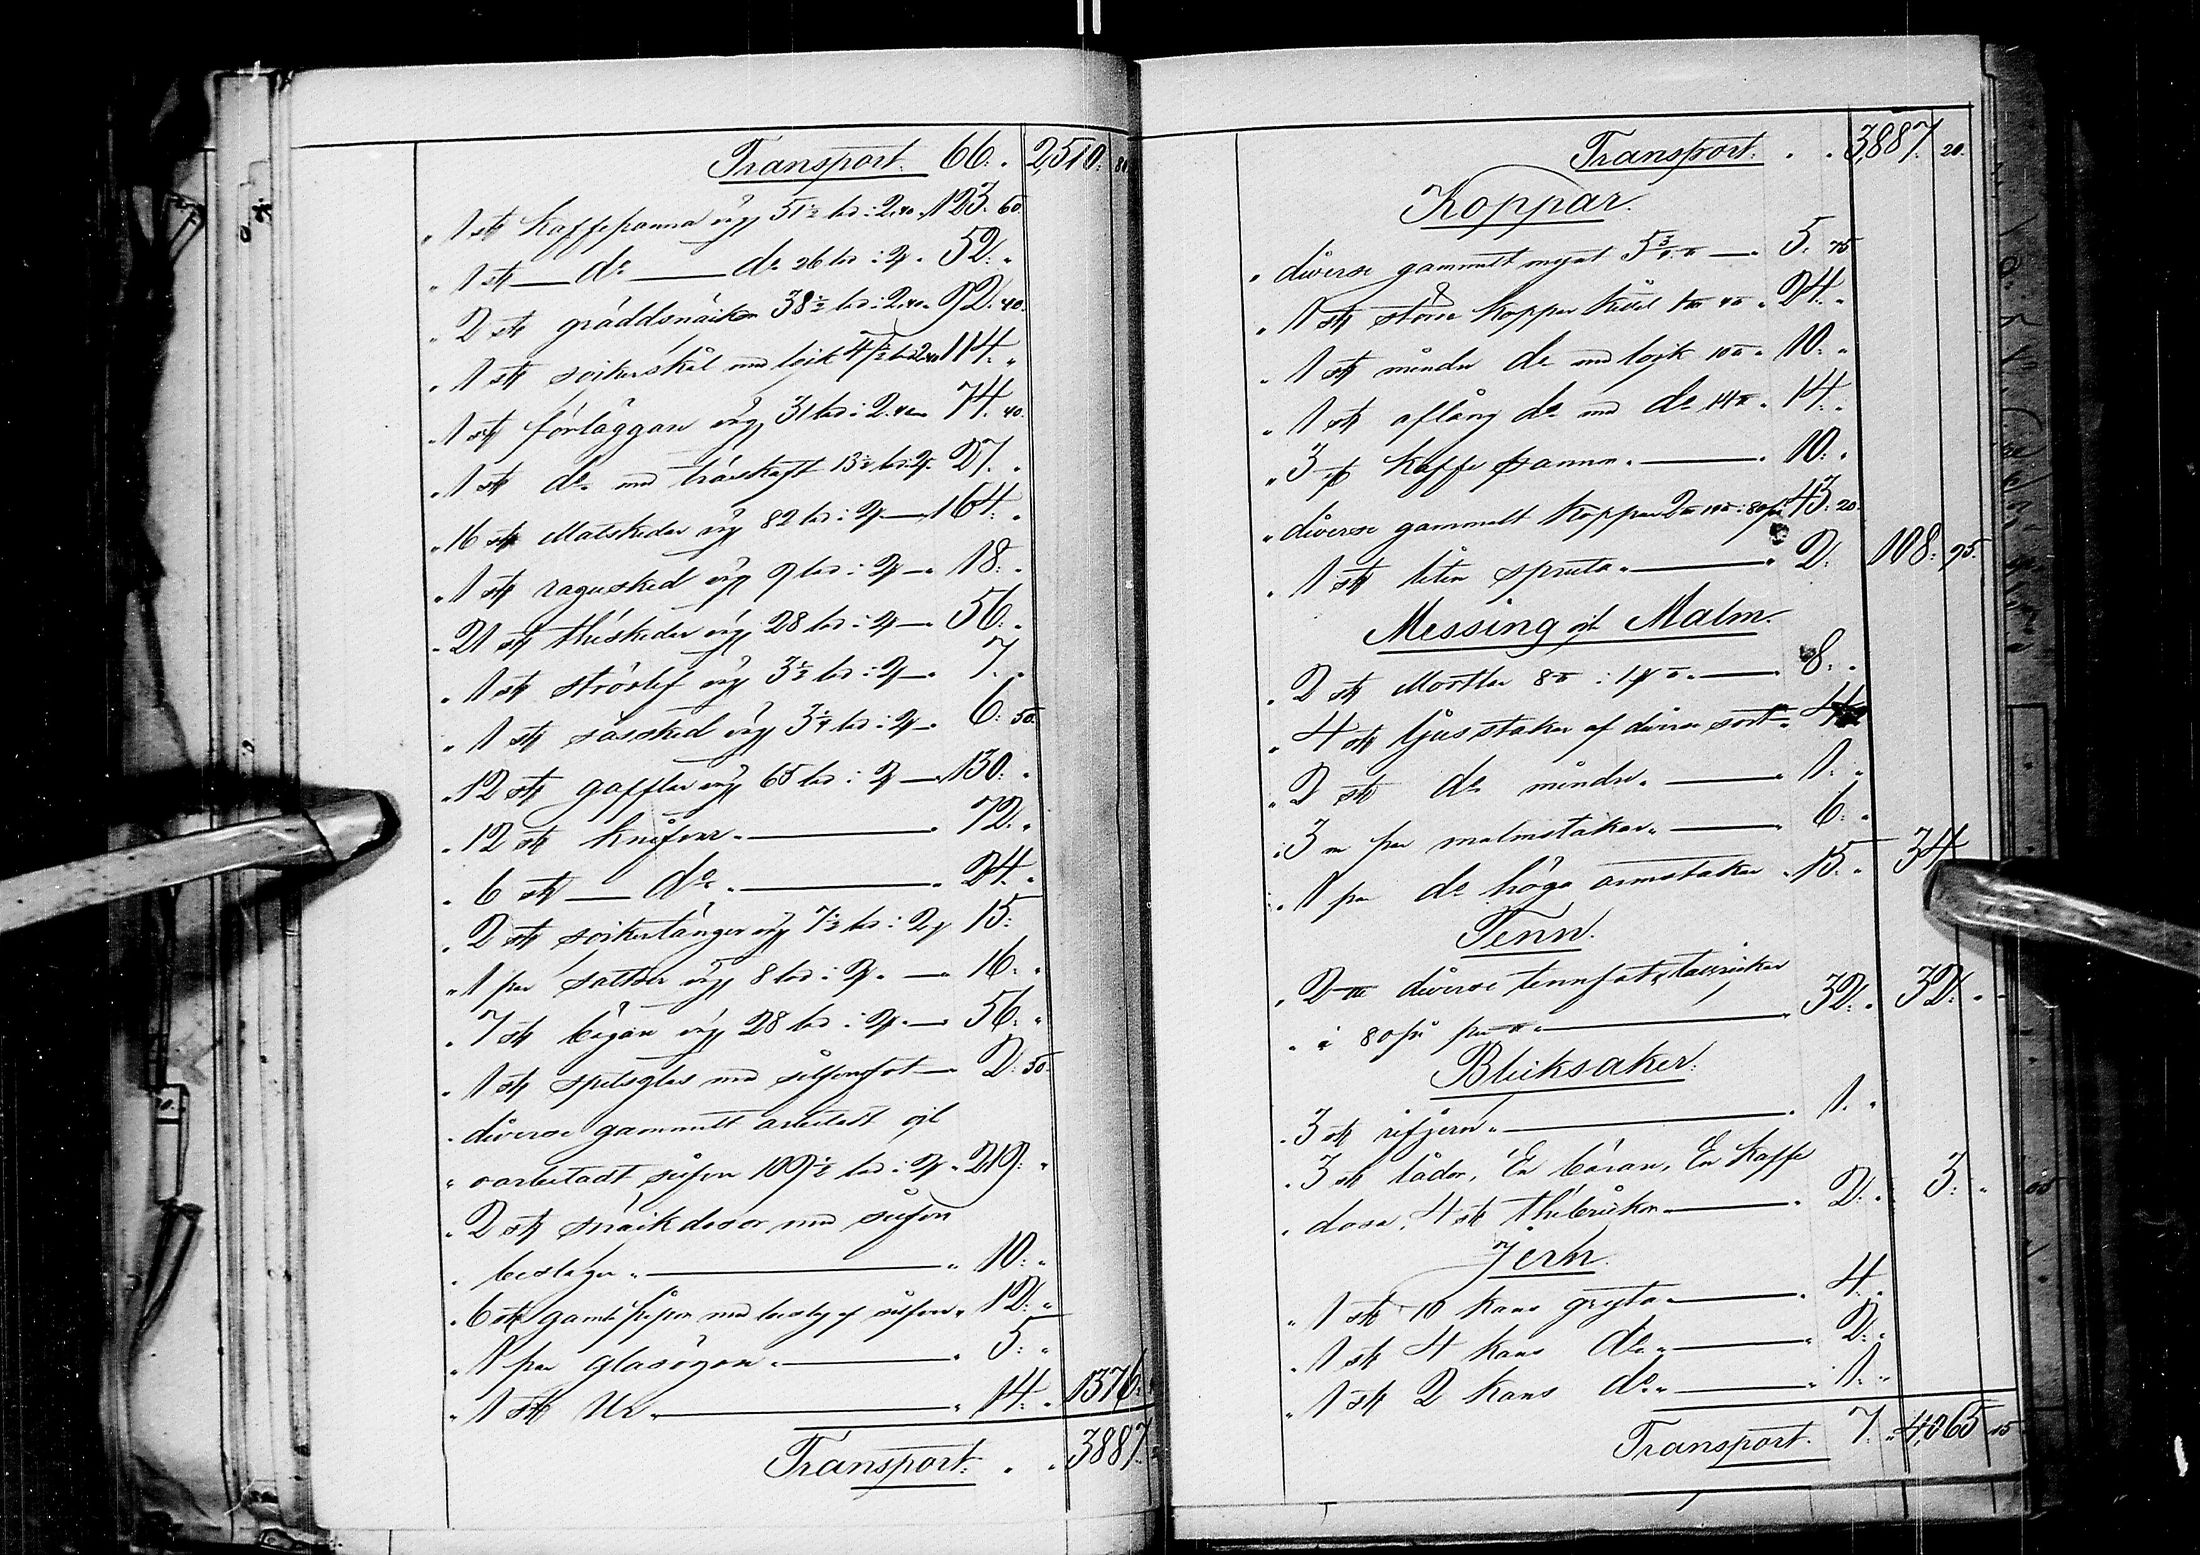 Transport. 66. " 2,510: 80
" 1 st Kaffepanna vig 51½ lod i 2,40. 123. 60.
" 1 st — do — do 26 lod i 2 " 52: "
" 2 st gräddsnäckor 38½ lod i 2,40 " 92. 40.
" 1 st sockerskål med lock 47½ lod 2,40 114: "
" 1 st förläggare vig 31 lod i 2.40 74. 40.
" 1 st do med träskaft 13½ lod i 2 27. "
" 16 st Matskedar vig 82 lod i 2 — 164: "
" 1 st ragusked vig 9 lod i 2 — " 18: "
" 21 st théskedar vig 28 lod i 2 — 56: "
" 1 st ströslef vig 3½ lod i 2 — 7. "
" 1 st såssked vig 3¼ lod i 2 — 6: 50.
" 12 st gafflar vig 65 lod i 2 — 130: "
" 12 st knifvar " — " 72: "
" 6 st — do " — " 24. "
" 2 st sockertänger vig 7½ lod i 2 15:
" 1 par vig 8 lod i 2 " — " 16: "
" 7 st bägare vig 28 lod i 2 — " 56: "
" 1 st spetsglas med silfverfot — " 2: 50.
" diverse gammalt arbetadt och
" oarbetadt silfver 109½ lod i 2 " 219: "
" 2 st snusdosor med silfver
" beslager " — " 10: "
" 6 st gamla pipor med beslag af silfver " 12: "
" 1 par glasögon " — " 5: "
" 1 st Ur " — " 14: " 1376:
Transport. " " 3887.
Transport. " " 3,887. 20.
Koppar.
" diverse gammalt mynt 5¾ ℔ — " 5. 75
" 1 st större koppar kittel " 24. "
" 1 st mindre do med lock 10 ℔ " 10: "
" 1 st aflång do med do 14 ℔ " 14: "
" 3 st Kaffe pannor " — " 10: "
" diverse gammalt koppar 43. 20
" 1 st liten spruta " — " 2: 108: 95.
Messing och Malm.
" 2 st Mortlar 8 ℔ i 1 ℔ " — " 8: "
" 4 st ljusstakar af diverse sort " 4
" 2 st do mindre " — " 1: "
" 3 par malmstakar " — " 6: "
" 1 par do höga armstakar " 15. " 34
Tenn.
" 2 diverse tennfat, tallrickar
" i 80 per ℔ " — " 32: " 32: "
Bleksaker.
" 3 st rifjern " — " 1. "
" 3 st lådor, En En Kaffe
" dosa, 4 st thébrickor — " 2: " 3: "
Jern.
" 1 st 10 kans gryta " — " 4. "
" 1 st 4 kans do " — " 2: "
" 1 st 2 kans do " — " 1: "
Transport. 7: " 4,065 15